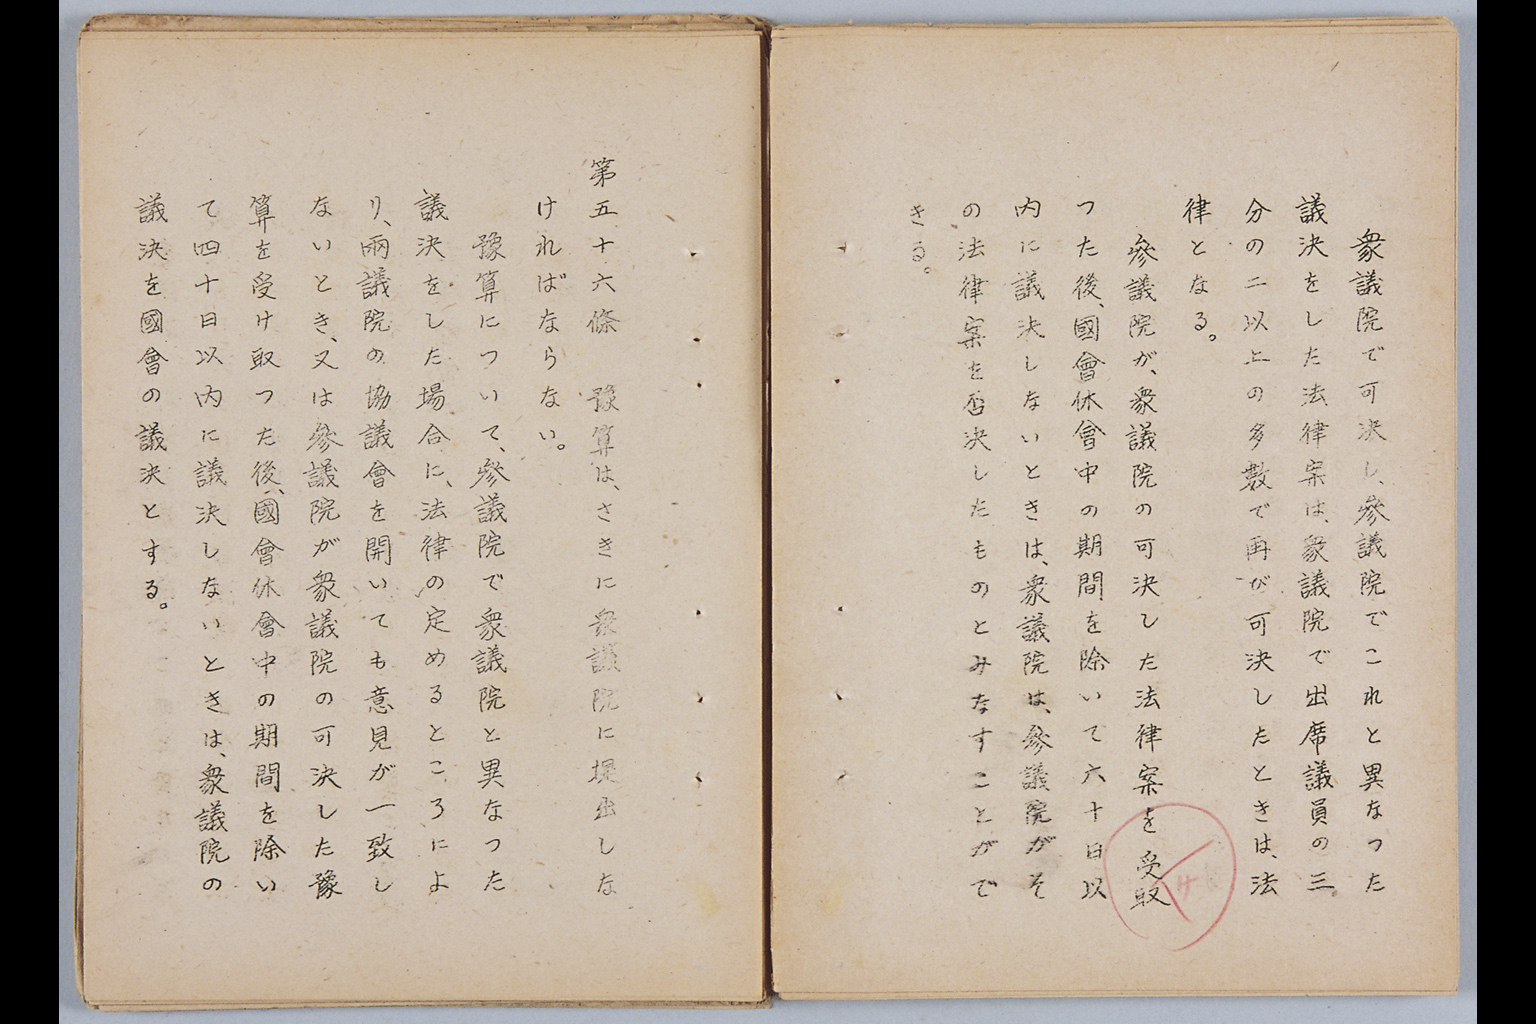 衆議院で可決し、參議院でこれと異なつた
議決をした法律案は、衆議院で出席議員の三
分の二以上の多數で再び可決したときは、法
律となる。
參議院が、衆議院の可決した法律案を受取
つた後、國會休會中の期間を除いて六十日以
内に議決しないときは、衆議院は、參議院がそ
の法律案を否決したものとみなすことがで
きる。
ケ
第五十六條 豫算は、さきに衆議院に提出しな
ければならない。
豫算について、參議院で衆議院と異なつた
議決をした場合に、法律の定めるところによ
り、兩議院の協議會を開いても意見が一致し
ないとき、又は參議院が衆議院の可決した豫
算を受け取つた後、國會休會中の期間を除い
て四十日以内に議決しないときは、衆議院の
議決を國會の議決とする。